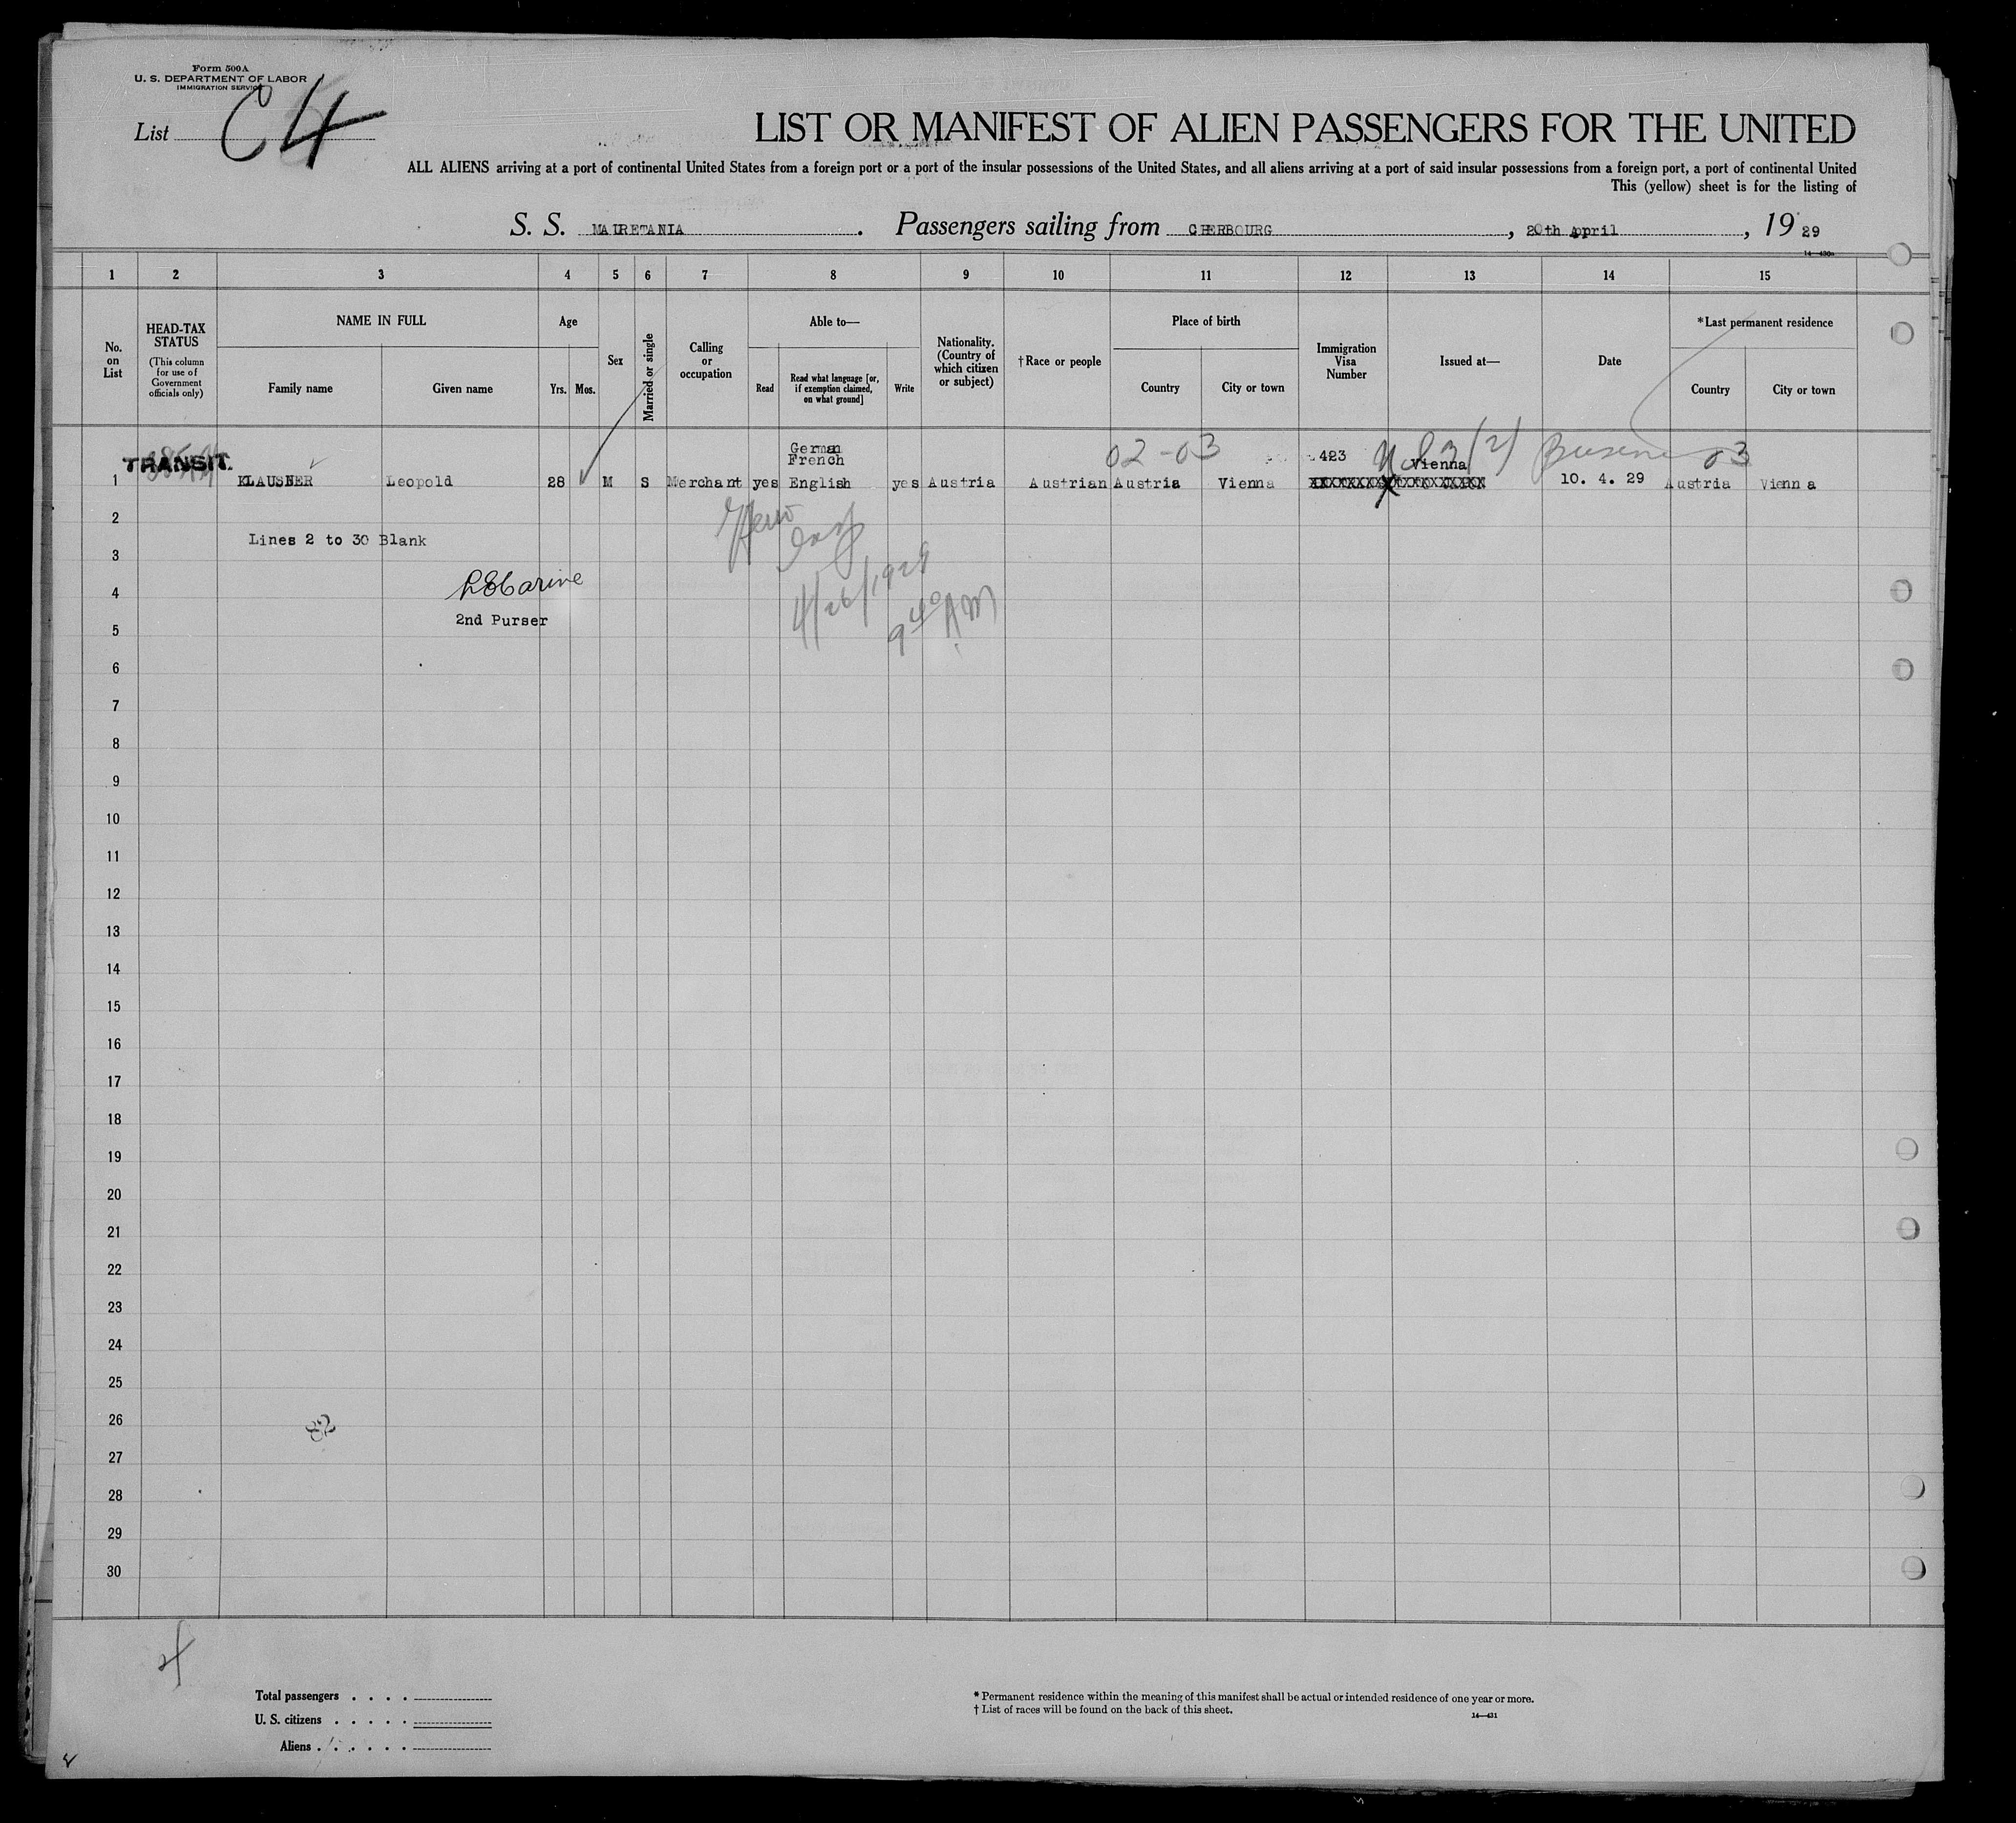 Form 500A
U. S. DEPARTMENT OF LABOR
IMMIGRATION SERVICE
List C4
LIST OR MANIFEST OF ALIEN PASSENGERS FOR THE UNITED
ALL ALIENS arriving at a port of continental United States from a foreign port or a port of the insular possessions of the United States, and all aliens arriving at a port of said insular possessions from a foreign port, a port of continental United
This (yellow) sheet is for the listing of
S. S. MAURETANIA. Passengers sailing from CHERBOURG, 20th April, 19 29
14—430a
1 2 3 4 5 6 7 8 9 10 11 12 13 14 15
No. on List
HEAD-TAX STATUS
(This column for use of Government officials only)
NAME IN FULL
Family name Given name
Age
Yrs. Mos.
Sex
Married or single
Calling or occupation
Able to—
Read Read what language [or, if exemption claimed, on what ground] Write
Nationality. (Country of which citizen or subject)
†Race or people
Place of birth
Country City or town
Immigration Visa Number
Issued at—
Date
*Last permanent residence
Country City or town
German 02-03
TRANSIT. French 423 Vienna 3(2) 03
1 KLAUSNER Leopold 28 M S Merchant yes English yes Austria Austrian Austria Vienna 10. 4. 29 Austria Vienna
2
Lines 2 to 30 Blank
3
4 4/26/1929
2nd Purser 9 40 AM
5
6
7
8
9
10
11
12
13
14
15
16
17
18
19
20
21
22
23
24
25
26
27
28
29
30
Total passengers . . . .
U. S. citizens . . . . .
Aliens . . . . . .
* Permanent residence within the meaning of this manifest shall be actual or intended residence of one year or more.
† List of races will be found on the back of this sheet.
14—431